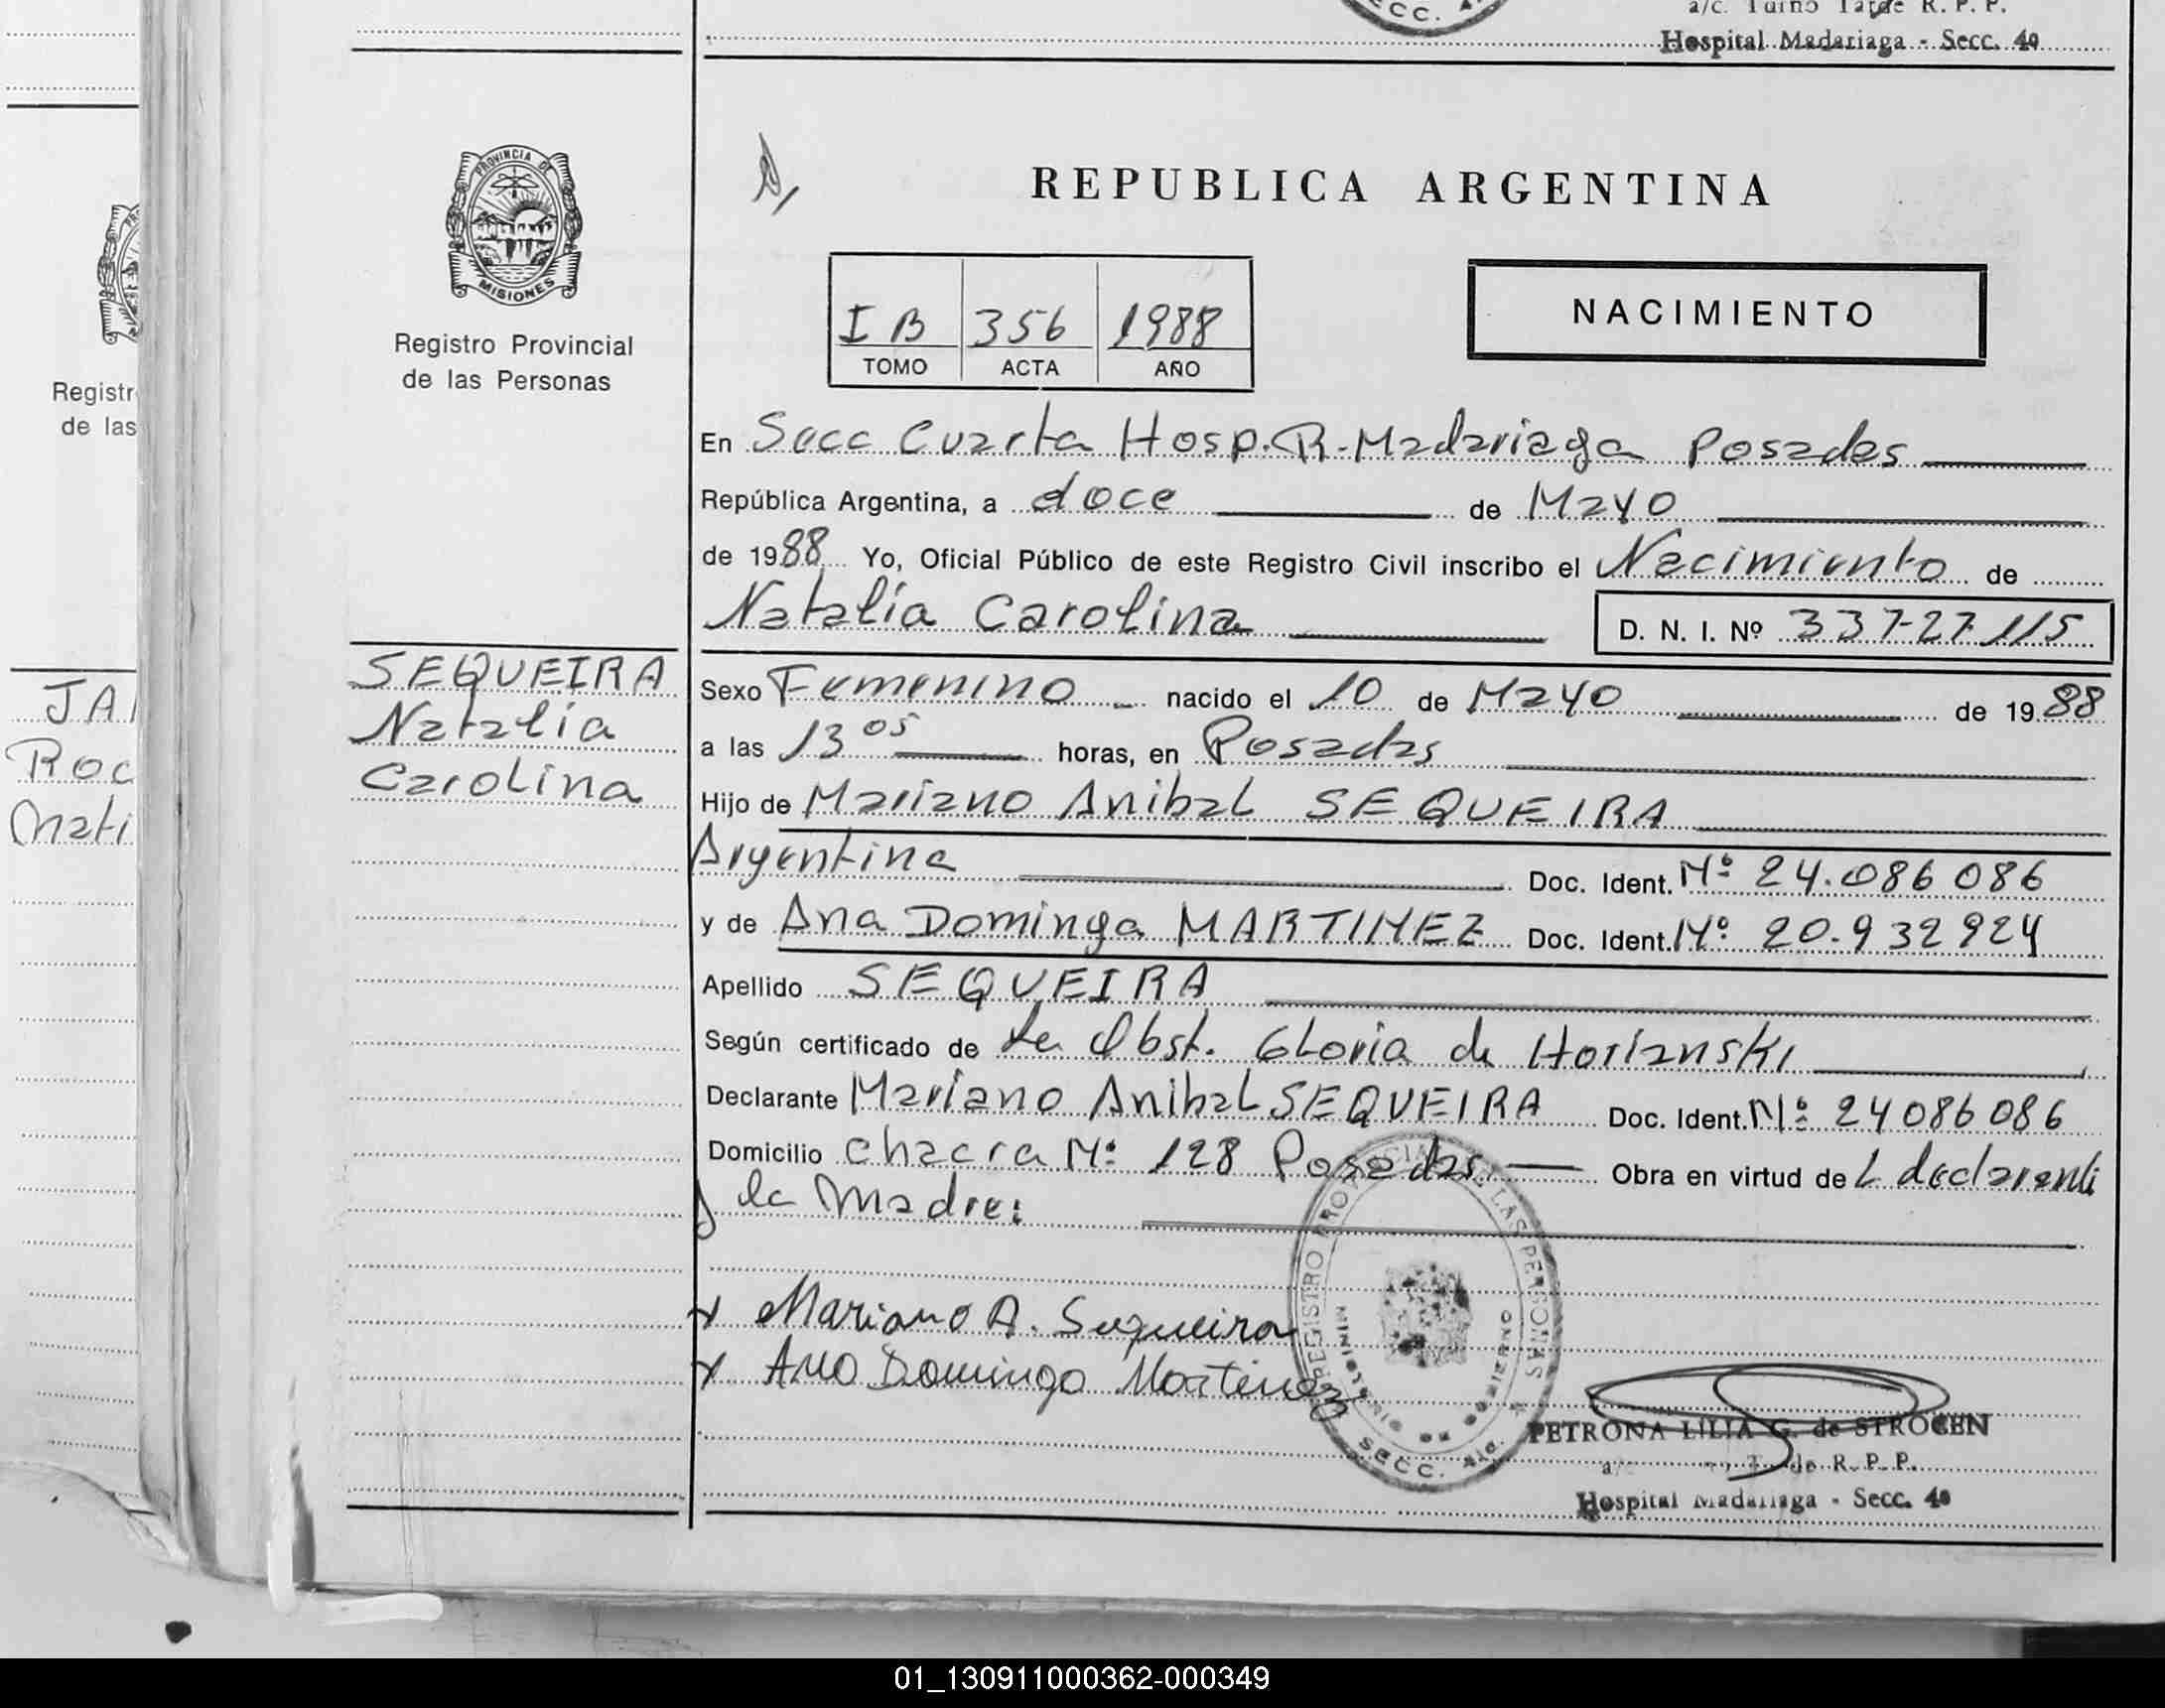 a/c. Turno Tarde R. P. P.
Hospital Madariaga - Secc. 4a
SECC.
PROVINCIA DE
MISIONES
Registro Provincial
de las Personas
REPUBLICA ARGENTINA
I B 356 1988
TOMO ACTA AÑO
NACIMIENTO
Registr
de las
En Secc Cuarta Hosp. R. Madariaga Posadas
República Argentina, a doce de Mayo
de 1988 Yo, Oficial Público de este Registro Civil inscribo el Nacimiento de
Natalia Carolina D. N. I. Nº 33727115
JA
Roc
Mati
SEQUEIRA
Natalia
Carolina
Sexo Femenino nacido el 10 de Mayo de 1988
a las 13 05 horas, en Posadas
Hijo de Mariano Anibal SEQUEIRA
Argentina Doc. Ident. Nº 24.086 086
y de Ana Dominga MARTINEZ Doc. Ident. Nº 20.932924
Apellido SEQUEIRA
Según certificado de La Obst. Gloria de Horianski
Declarante Mariano Anibal SEQUEIRA Doc. Ident. Nº 24086086
Domicilio Chacra Nº 128 Posadas Obra en virtud de L declarante
y la Madre:
x Mariano A. Sequeira
x Ana Dominga Martinez
REGISTRO PROVINCIAL DE LAS PERSONAS
MINISTERIO DE GOBIERNO
SECC. 4ta.
PETRONA LILIA G. de STROCEN
R. P. P.
Hospital Madariaga - Secc. 4a
01_130911000362-000349